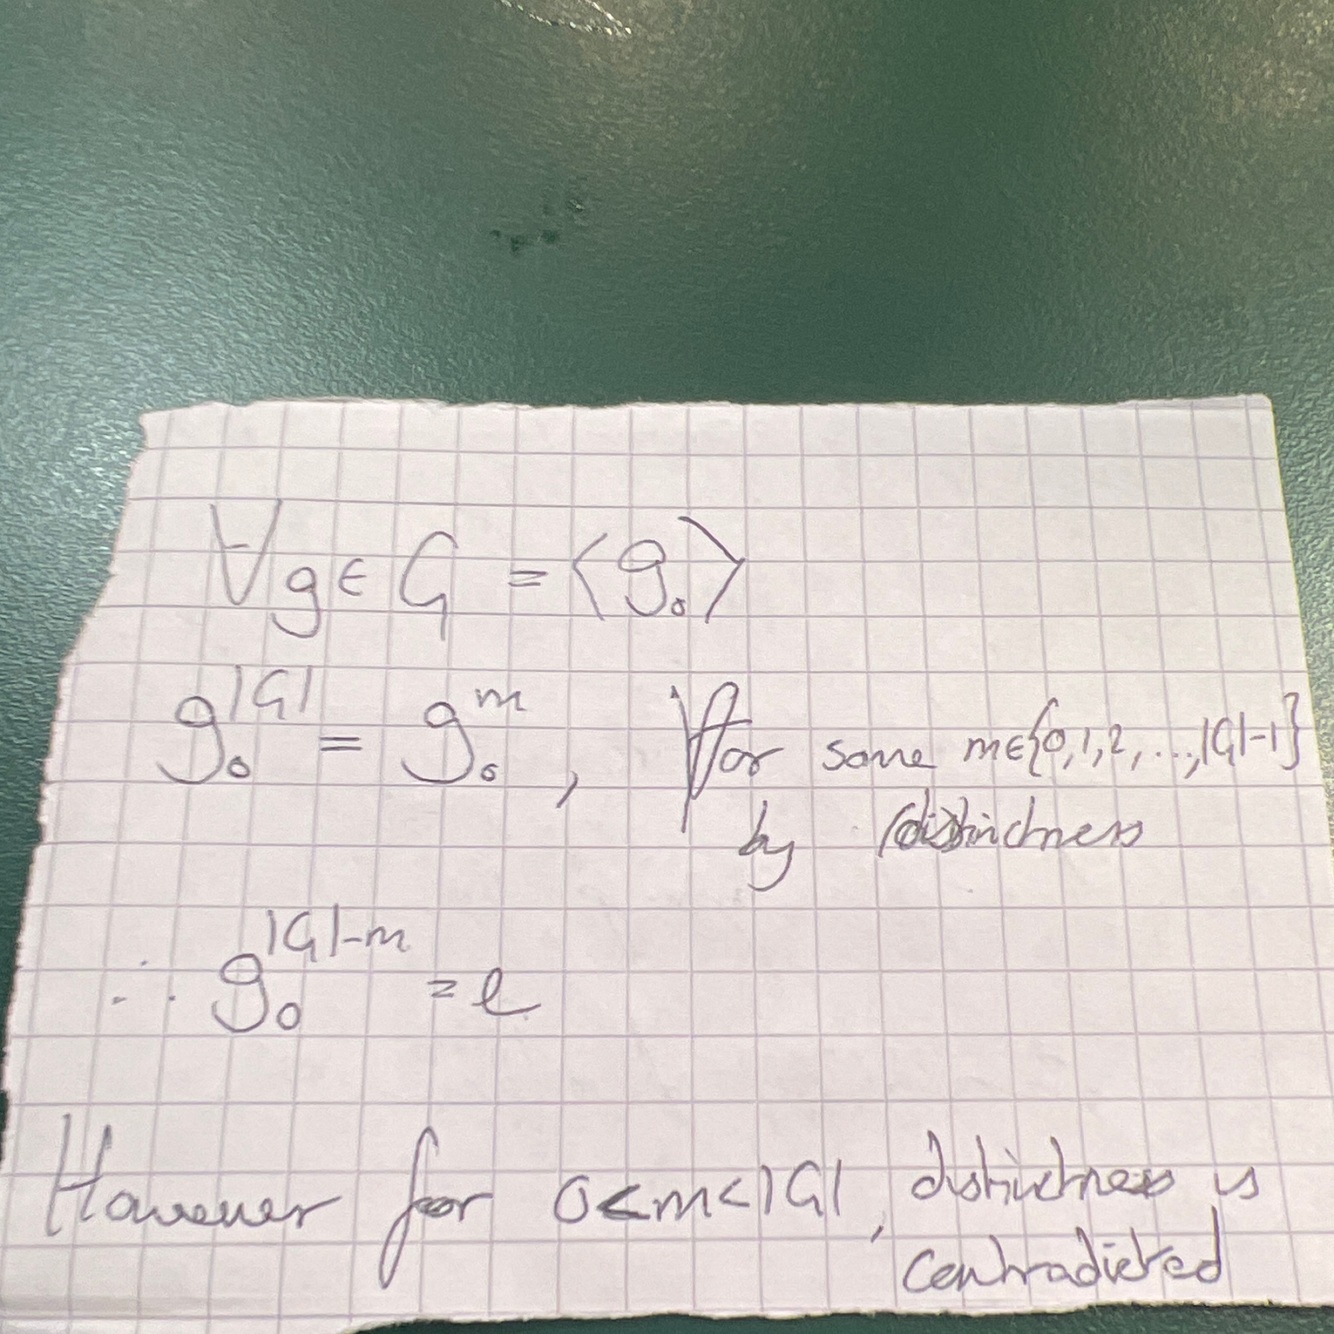 ∀g∈G = ⟨g₀⟩
g₀^|G| = g₀^m, for some m∈{0,1,2,...,|G|-1}
by distinctness
∴ g₀^|G|-m = e
However for 0<m<|G|, distinctness is
contradicted